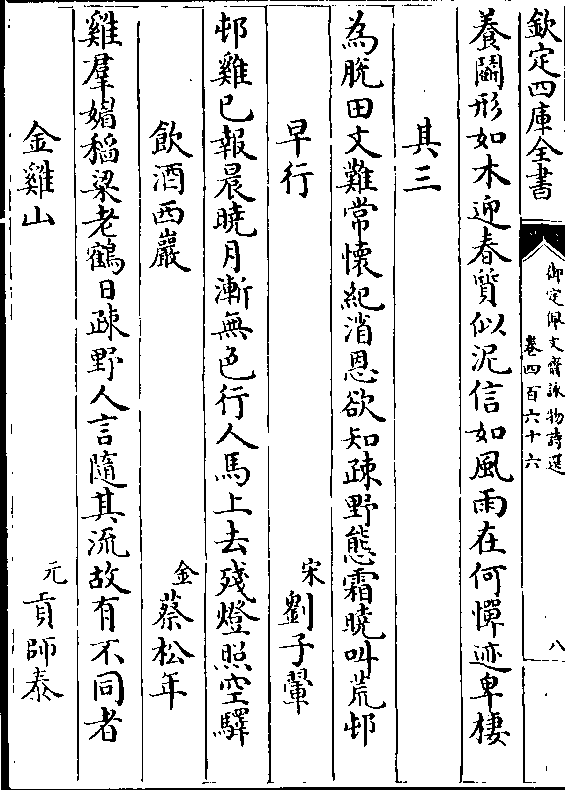 欽定四庫全書
御定佩文齋詠物詩選
卷四百六十六
八
養鬭形如木迎春質似泥信如風雨在何憚迹卑棲
其三
為脫田文難常懷紀渻恩欲知疎野態霜曉叫荒邨
早行
宋劉子翬
邨雞已報晨曉月漸無色行人馬上去殘燈照空驛
飲酒西巖
金蔡松年
雞羣媚稻粱老鶴日疎野人言隨其流故有不同者
金雞山
元貢師泰